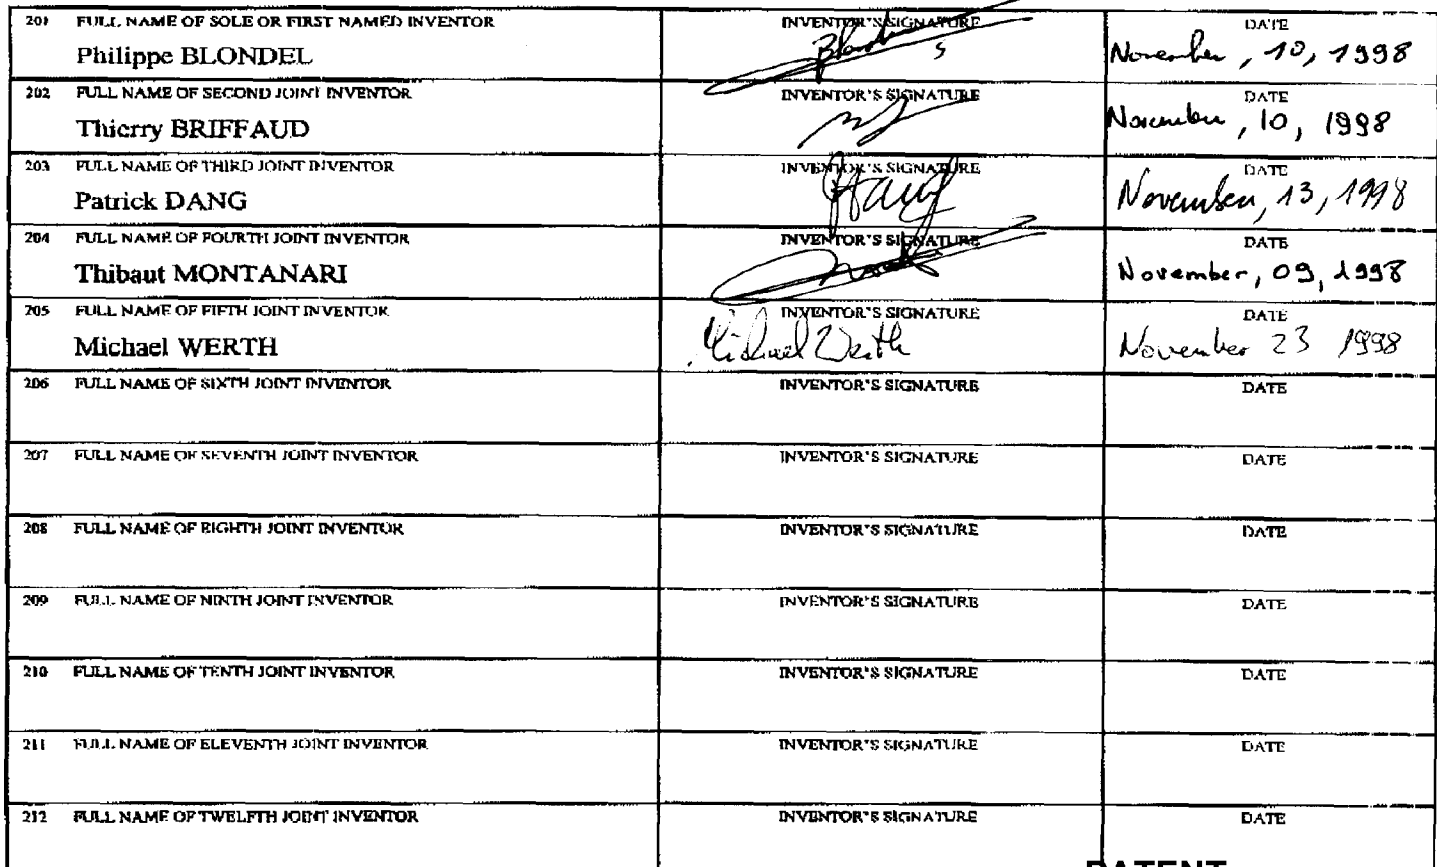 201 FULL NAME OF SOLE OR FIRST NAMED INVENTOR INVENTOR'S SIGNATURE DATE
Philippe BLONDEL November, 10, 1998
202 FULL NAME OF SECOND JOINT INVENTOR INVENTOR'S SIGNATURE DATE
Thierry BRIFFAUD November, 10, 1998
203 FULL NAME OF THIRD JOINT INVENTOR INVENTOR'S SIGNATURE DATE
Patrick DANG November, 13, 1998
204 FULL NAME OF FOURTH JOINT INVENTOR INVENTOR'S SIGNATURE DATE
Thibaut MONTANARI November, 09, 1998
205 FULL NAME OF FIFTH JOINT INVENTOR INVENTOR'S SIGNATURE DATE
Michael WERTH Michael Werth November 23 1998
206 FULL NAME OF SIXTH JOINT INVENTOR INVENTOR'S SIGNATURE DATE
207 FULL NAME OF SEVENTH JOINT INVENTOR INVENTOR'S SIGNATURE DATE
208 FULL NAME OF EIGHTH JOINT INVENTOR INVENTOR'S SIGNATURE DATE
209 FULL NAME OF NINTH JOINT INVENTOR INVENTOR'S SIGNATURE DATE
210 FULL NAME OF TENTH JOINT INVENTOR INVENTOR'S SIGNATURE DATE
211 FULL NAME OF ELEVENTH JOINT INVENTOR INVENTOR'S SIGNATURE DATE
212 FULL NAME OF TWELFTH JOINT INVENTOR INVENTOR'S SIGNATURE DATE
PATENT